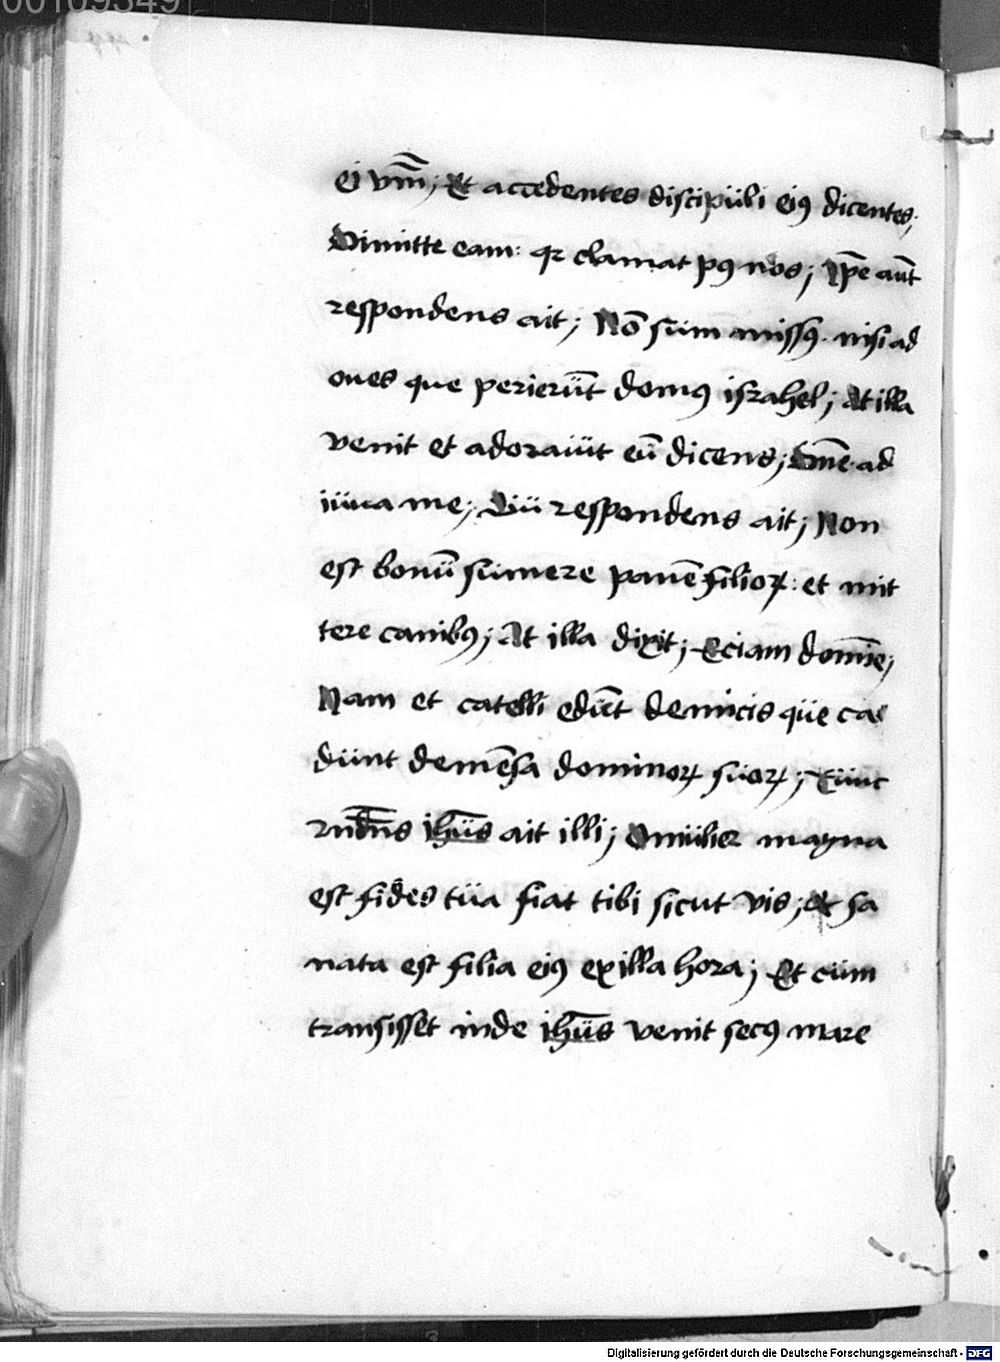 00109349
ei vm̅; Et accedentes discipüli eiꝰ dicentes;
Dimitte eam: qꝛ clamat pꝰ nos; Ip̅e aüt̅
respondens ait; Nō süm missꝰ. nisi ad
oues que perierüt̅ domꝰ israhel; At illa
venit et adoraüit eū dicens; Dn̅e. ad
iüua me; Qüi respondens ait; Non
est bonū sümere panē filioꝝ: et mit
tere canibꝰ; At illa dixit; Eciam domi̅e;
Nam et catelli edūt de micis qüe ca
dünt de mēsa dominoꝝ süoꝝ; Tünc
rn̅de̅ns ihu̅s ait illi; O mülier magna
est fides tüa fiat tibi sicut vis; et sa
nata est filia eiꝰ ex illa hora; Et cüm
transisset inde ihu̅s venit secꝰ mare
Digitalisierung gefördert durch die Deutsche Forschungsgemeinschaft - DFG